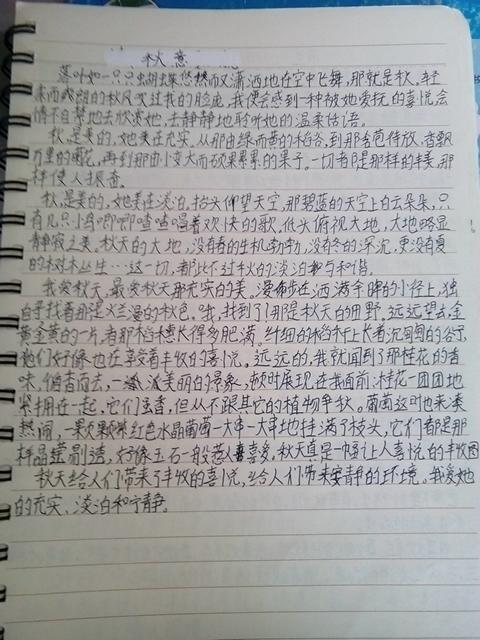 秋意
落叶如一只只蝴蝶悠然而又潇洒地在空中飞舞,那就是秋。轻
柔而飘的秋风吹过我的脸庞,我便会感到一种被她爱抚的喜悦,会
情不自禁地去欣赏她,去静静地聆听她的温柔话语。
秋,是美的,她美在充实。从那由绿而黄的稻谷,到那含苞待放、香飘
万里的菊花,再到那由小变大而硕果累累的果子。一切都是那样的丰美,那
样使人振奋。
秋,是美的,她美在淡泊。抬头仰望天空,那碧蓝的天空上白云朵朵,只
有几只小鸟唧唧喳喳唱着欢快的歌,低头俯视大地,大地略显
静寂之美。秋天的大地,没有春的生机勃勃,没有冬的深沉,更没有夏
的树木丛生…这一切,都比不过秋的淡泊与和谐。
我爱秋天,最爱秋天那充实的美。漫步在洒满余晖的小径上,独
自寻找着那烂漫的秋色。哦,找到了!那是秋天的田野,远远望去,金
黄金黄的一片,看那稻穗长得多肥满。纤细的稻杆上长着沉甸甸的谷子,
她们好像也在享受着丰收的喜悦。远远的,我就闻到了那桂花的香
味,循香而去,一派美丽的景象,顿时展现在我面前:桂花一团团地
紧拥在一起,它们虽香,但从不跟其它的植物争秋。葡萄这时也来凑
热闹,一颗颗红色水晶葡萄一大串一大串地挂满了枝头,它们都是那
样晶莹剔透,好像玉石一般惹人喜爱,秋天真是一幅让人喜悦的丰收图
秋天给人们带来了丰收的喜悦,给人们带来安静的环境。我爱她
的充实、淡泊和宁静。